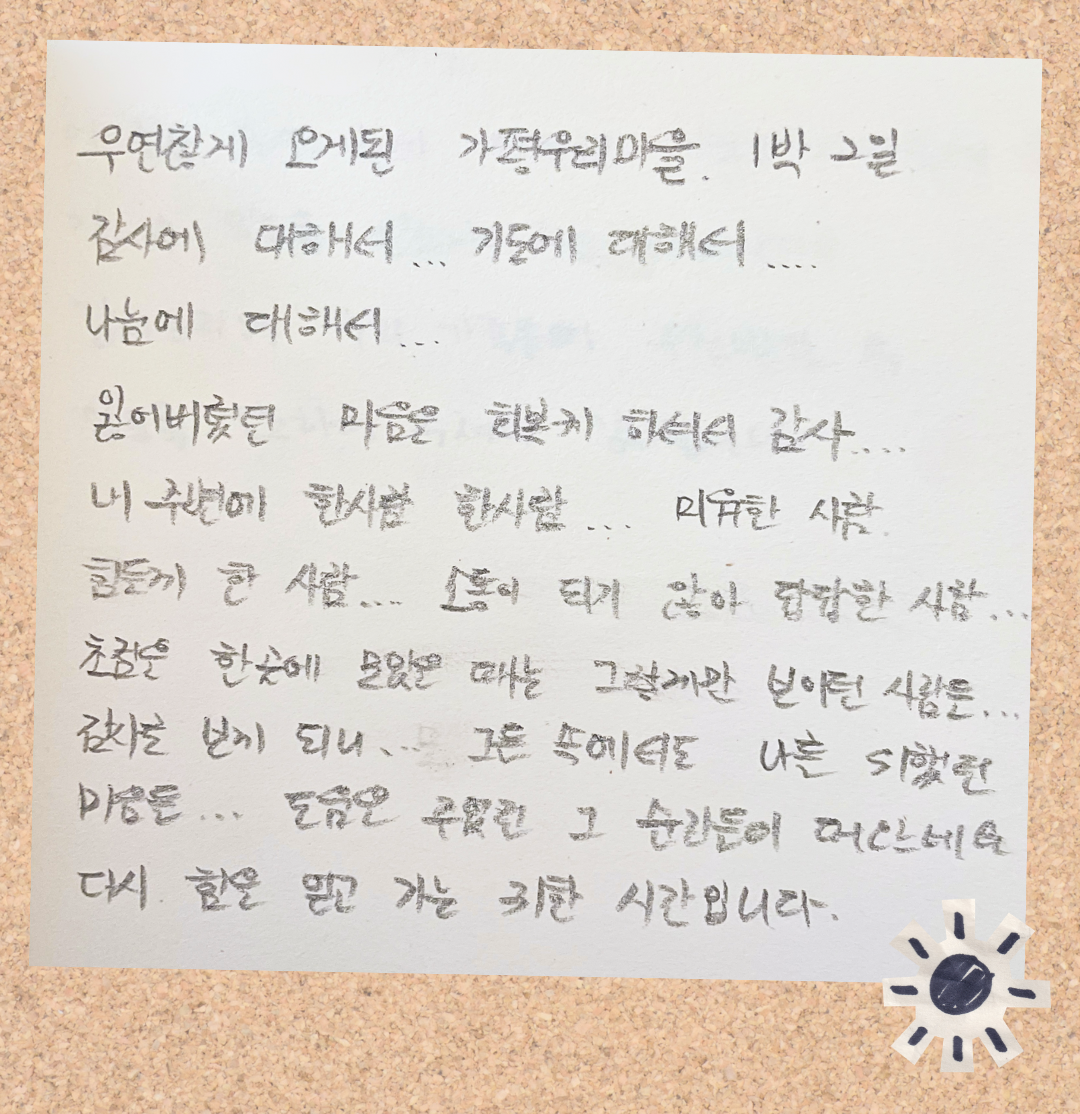 우연찮게 오게된 가평우리마을. 1박 2일
감사에 대해서... 기도에 대해서....
나눔에 대해서...
잃어버렸던 마음을 회복케 하셔서 감사....
내 주변에 한사람 한사람... 미유한 사람.
힘들게 한 사람.... 소통이 되기 않아 답답한 사람...
초점을 한곳에 모았을 때는 그렇게만 보이던 사람들...
감사로 보게 되니.... 그들 속에서도 나를 위했던
마음들... 도움을 주었던 그 순간들이 머릿속에
다시 힘을 얻고 가는 귀한 시간입니다.